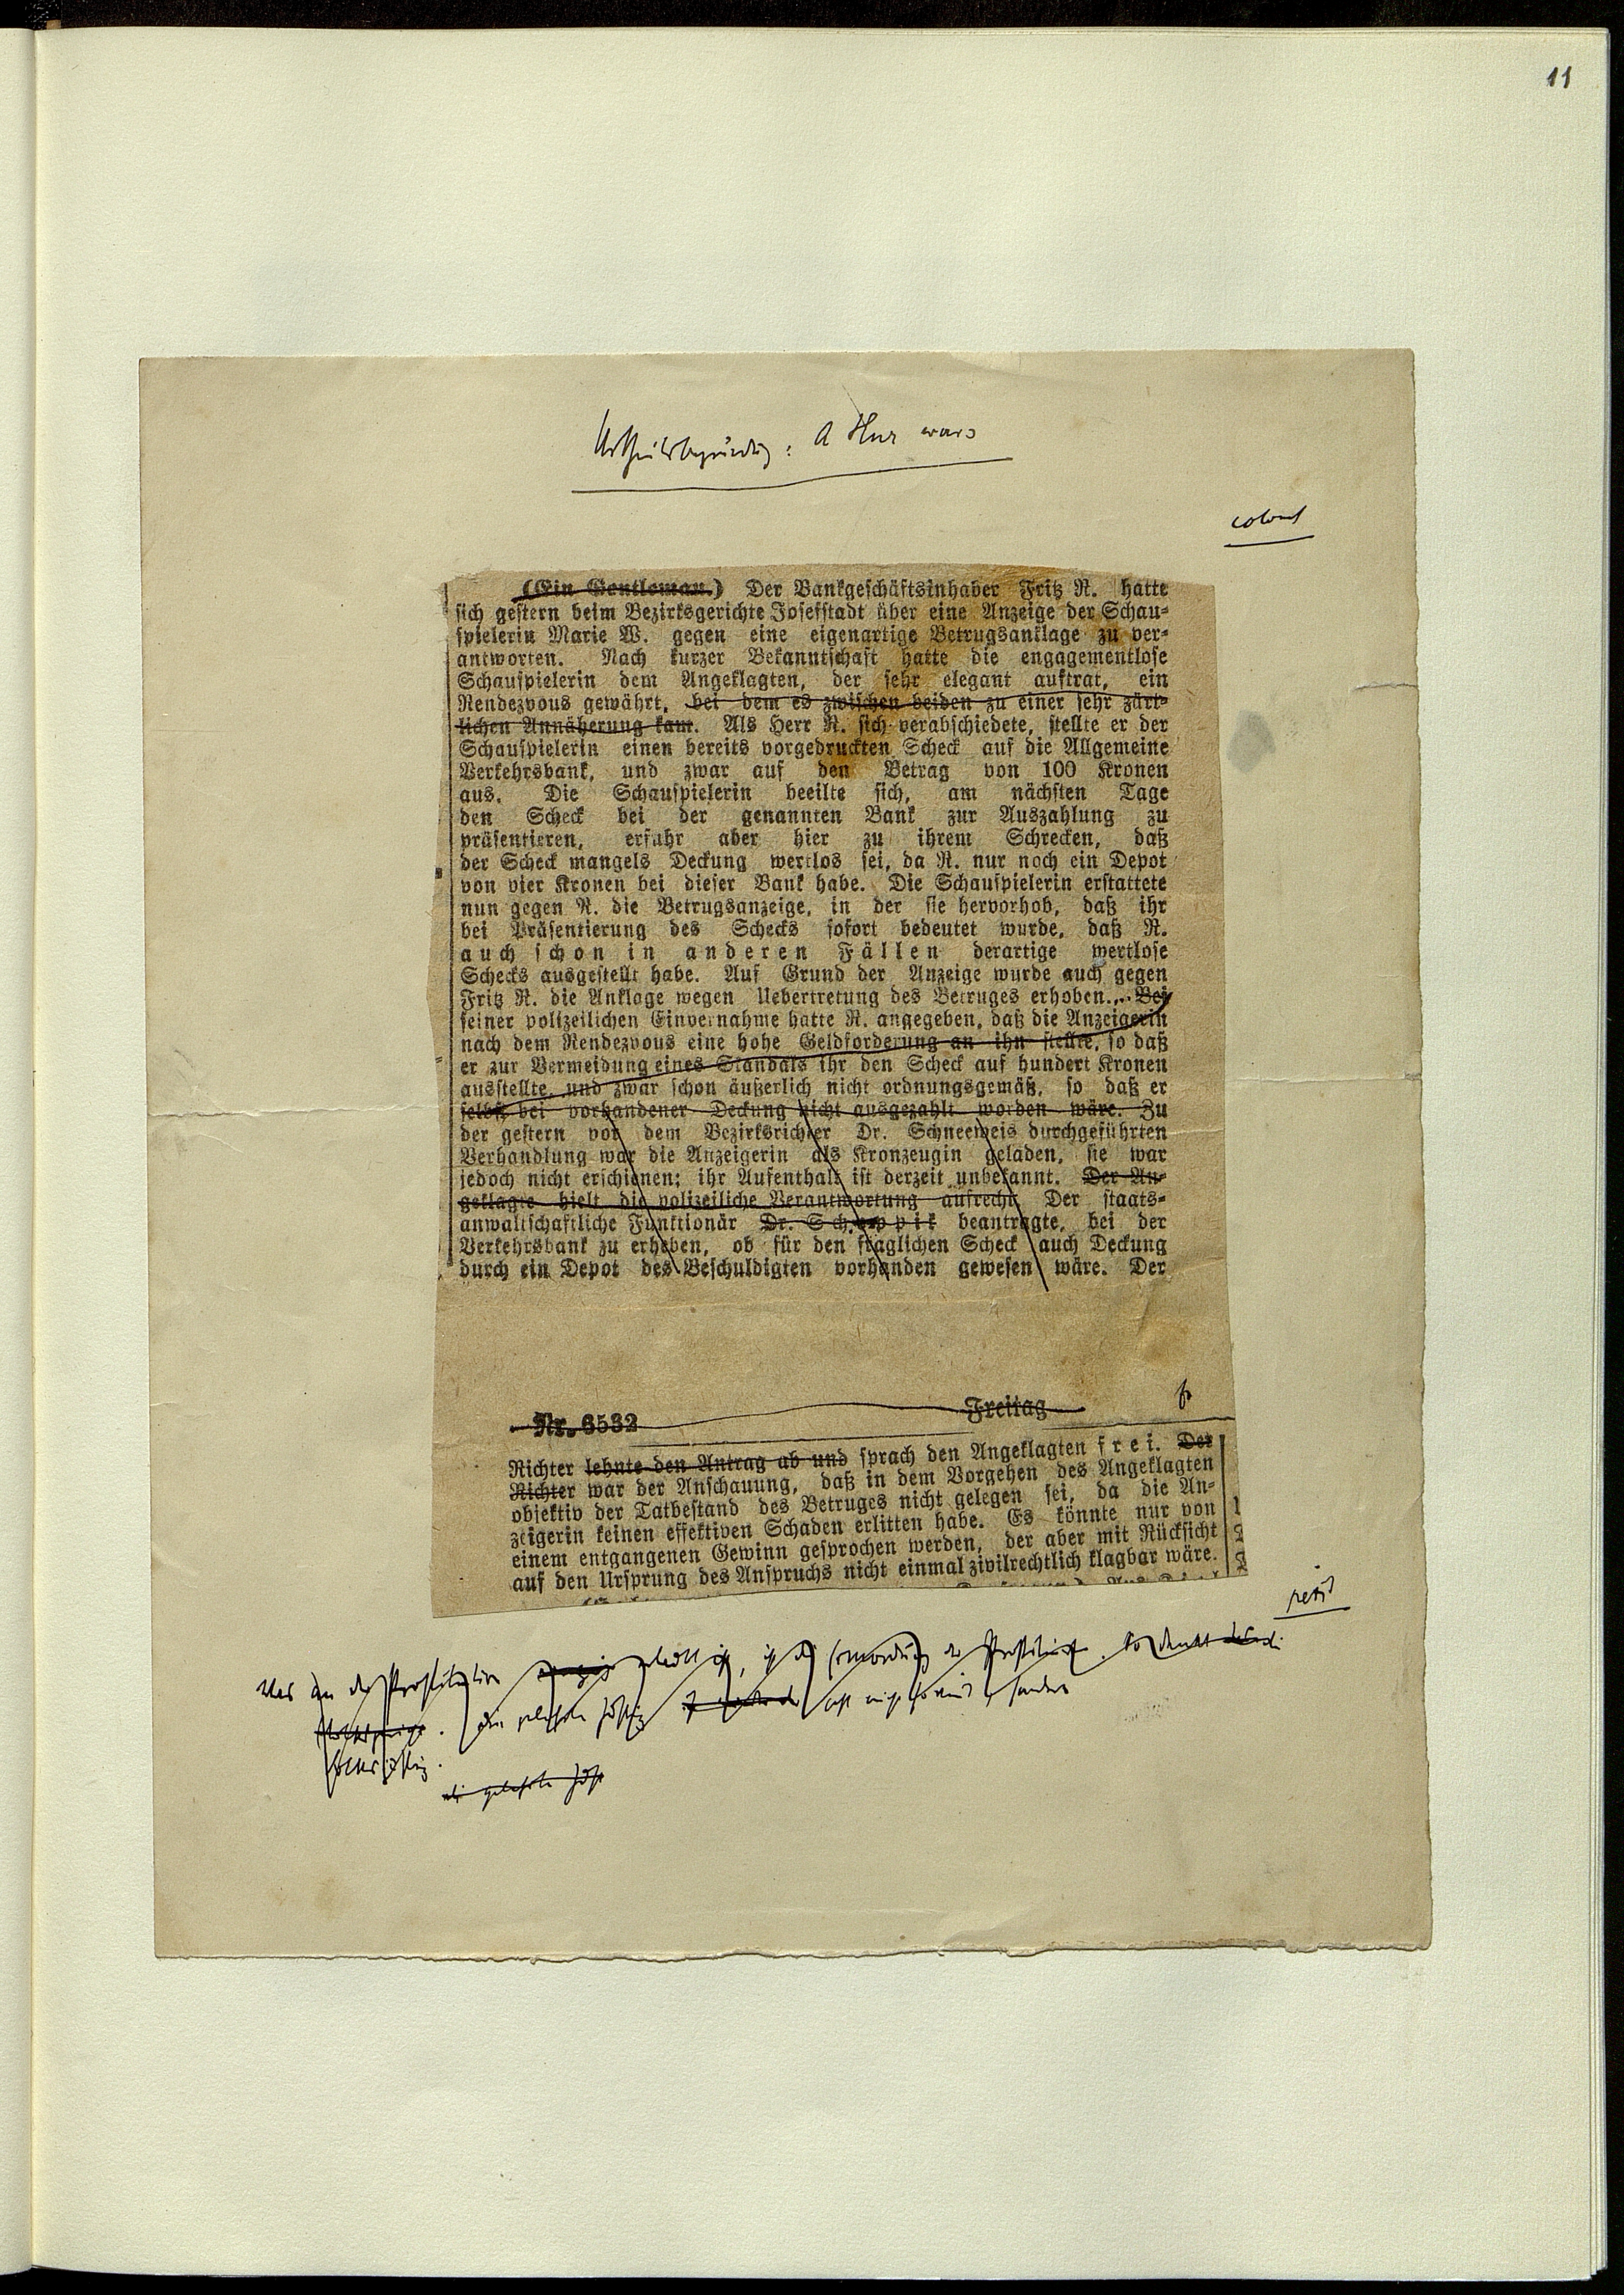 11
Urtheilsbegründg: A Hur wars
(Ein Gentleman.) Der Bankgeschäftsinhaber Fritz R. hatte
sich gestern beim Bezirksgerichte Josefstadt über eine Anzeige der Schau-
spielerin Marie W. gegen eine eigenartige Betrugsanklage zu ver-
antworten. Nach kurzer Bekanntschaft hatte die engagementlose
Schauspielerin dem Angeklagten, der sehr elegant auftrat, ein
Rendezvous gewährt, bei dem es zwischen beiden zu einer sehr zärt-
lichen Annäherung kam. Als Herr R. sich verabschiedete, stellte er der
Schauspielerin einen bereits vorgedruckten Scheck auf die Allgemeine
Verkehrsbank, und zwar auf den Betrag von 100 Kronen
aus. Die Schauspielerin beeilte sich, am nächsten Tage
den Scheck bei der genannten Bank zur Auszahlung zu
präsentieren, erfuhr aber hier zu ihrem Schrecken, daß
der Scheck mangels Deckung wertlos sei, da R. nur noch ein Depot
von vier Kronen bei dieser Bank habe. Die Schauspielerin erstattete
nun gegen R. die Betrugsanzeige, in der sie hervorhob, daß ihr
bei Präsentierung des Schecks sofort bedeutet wurde, daß R.
auch schon in anderen Fällen derartige wertlose
Schecks ausgestellt habe. Auf Grund der Anzeige wurde auch gegen
Fritz R. die Anklage wegen Uebertretung des Betruges erhoben. Bei
seiner polizeilichen Einvernahme hatte R. angegeben, daß die Anzeigerin
nach dem Rendezvous eine hohe Geldforderung an ihn stellte, so daß
er zur Vermeidung eines Skandals ihr den Scheck auf hundert Kronen
ausstellte, und zwar schon äußerlich nicht ordnungsgemäß, so daß er
selbst bei vorhandener Deckung nicht ausgezahlt worden wäre. Zu
der gestern vor dem Bezirksrichter Dr. Schneeweis durchgeführten
Verhandlung war die Anzeigerin als Kronzeugin geladen, sie war
jedoch nicht erschienen; ihr Aufenthalt ist derzeit unbekannt. Der An-
geklagte hielt die polizeiliche Verantwortung aufrecht. Der staats-
anwaltschaftliche Funktionär Dr. beantragte, bei der
Verkehrsbank zu erheben, ob für den fraglichen Scheck auch Deckung
durch ein Depot des Beschuldigten vorhanden gewesen wäre. Der
Nr. 6532 Freitag
Richter lehnte den Antrag ab und sprach den Angeklagten frei. Der
Richter war der Anschauung, daß in dem Vorgehen des Angeklagten
objektiv der Tatbestand des Betruges nicht gelegen sei, da die An-
zeigerin keinen effektiven Schaden erlitten habe. Es könnte nur von
einem entgangenen Gewinn gesprochen werden, der aber mit Rücksicht
auf den Ursprung des Anspruchs nicht einmal zivilrechtlich klagbar wäre.
petit
Was an der Prostitution